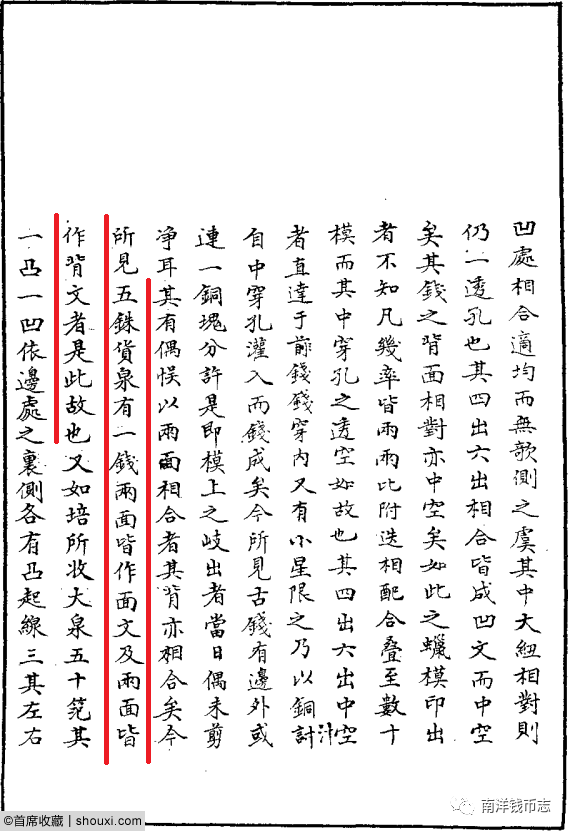 凹處相合適均而無欹側之虞其中大紐相對則
仍一透孔也其四出六出相合皆成凹文而中空
矣其錢之背面相對亦中空矣如此之蠟模印出
者不知凡幾率皆兩兩比附迭相配合疊至數十
模而其中穿孔之透空如故也其四出六出中空
者直達于前錢錢穿內又有小星限之乃以銅計汁
自中穿孔灌入而錢成矣今所見古錢有邊外或
連一銅塊分許是即模上之岐出者當日偶未剪
净耳其有偶悞以兩面相合者其背亦相合矣今
所見五銖貨泉有一錢兩面皆作面文及兩面皆
作背文者是此故也又如培所收大泉五十笵其
一凸一凹依邊處之裏側各有凸起線三其左右
南洋钱币志
©首席收藏 | shouxi.com